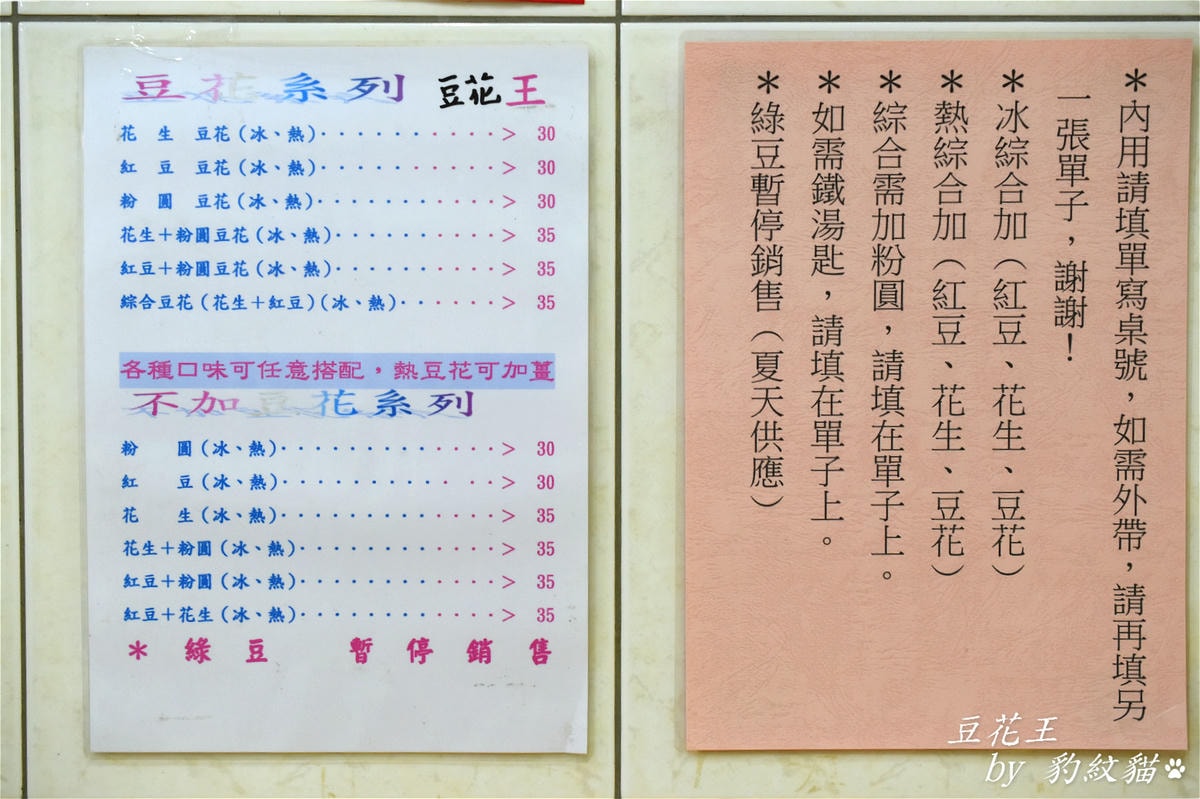 豆花系列 豆花王
花 生 豆花(冰、熱)··········> 30
紅 豆 豆花(冰、熱)··········> 30
粉 圓 豆花(冰、熱)··········> 30
花生+粉圓豆花(冰、熱)·········> 35
紅豆+粉圓豆花(冰、熱)·········> 35
綜合豆花(花生+紅豆)(冰、熱)······> 35
各種口味可任意搭配，熱豆花可加薑
不加豆花系列
粉 圓(冰、熱)············> 30
紅 豆(冰、熱)············> 30
花 生(冰、熱)············> 35
花生+粉圓(冰、熱)···········> 35
紅豆+粉圓(冰、熱)···········> 35
紅豆+花生(冰、熱)···········> 35
*綠豆 暫停銷售
*內用請填單寫桌號，如需外帶，請再填另
一張單子，謝謝！
*冰綜合加（紅豆、花生、豆花）
*熱綜合加（紅豆、花生、豆花）
*綜合需加粉圓，請填在單子上。
*如需鐵湯匙，請填在單子上。
*綠豆暫停銷售（夏天供應）
豆花王
by 豹紋貓